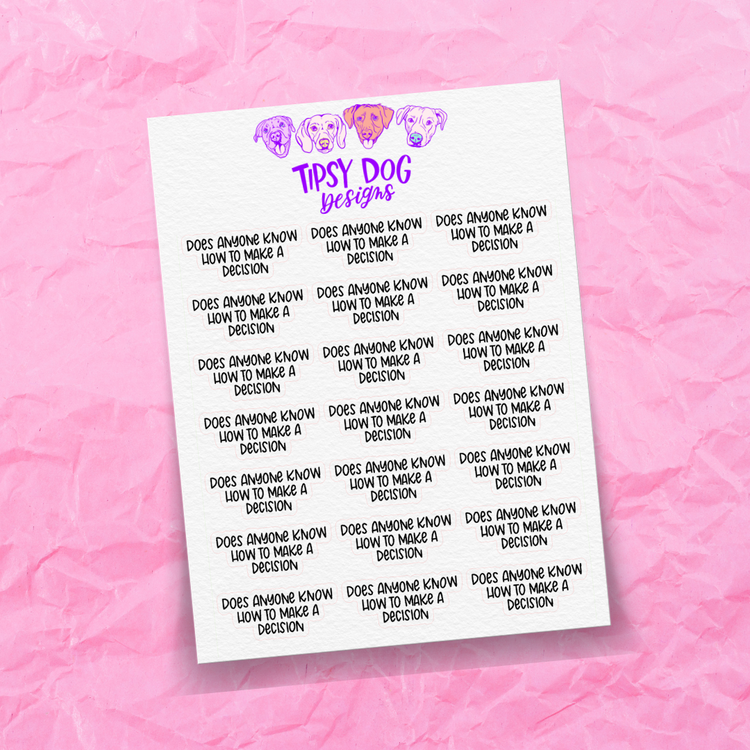 TIPSY DOG
Designs
DOES ANYONE KNOW
HOW TO MAKE A
DECISION
DOES ANYONE KNOW
HOW TO MAKE A
DECISION
DOES ANYONE KNOW
HOW TO MAKE A
DECISION
DOES ANYONE KNOW
HOW TO MAKE A
DECISION
DOES ANYONE KNOW
HOW TO MAKE A
DECISION
DOES ANYONE KNOW
HOW TO MAKE A
DECISION
DOES ANYONE KNOW
HOW TO MAKE A
DECISION
DOES ANYONE KNOW
HOW TO MAKE A
DECISION
DOES ANYONE KNOW
HOW TO MAKE A
DECISION
DOES ANYONE KNOW
HOW TO MAKE A
DECISION
DOES ANYONE KNOW
HOW TO MAKE A
DECISION
DOES ANYONE KNOW
HOW TO MAKE A
DECISION
DOES ANYONE KNOW
HOW TO MAKE A
DECISION
DOES ANYONE KNOW
HOW TO MAKE A
DECISION
DOES ANYONE KNOW
HOW TO MAKE A
DECISION
DOES ANYONE KNOW
HOW TO MAKE A
DECISION
DOES ANYONE KNOW
HOW TO MAKE A
DECISION
DOES ANYONE KNOW
HOW TO MAKE A
DECISION
DOES ANYONE KNOW
HOW TO MAKE A
DECISION
DOES ANYONE KNOW
HOW TO MAKE A
DECISION
DOES ANYONE KNOW
HOW TO MAKE A
DECISION